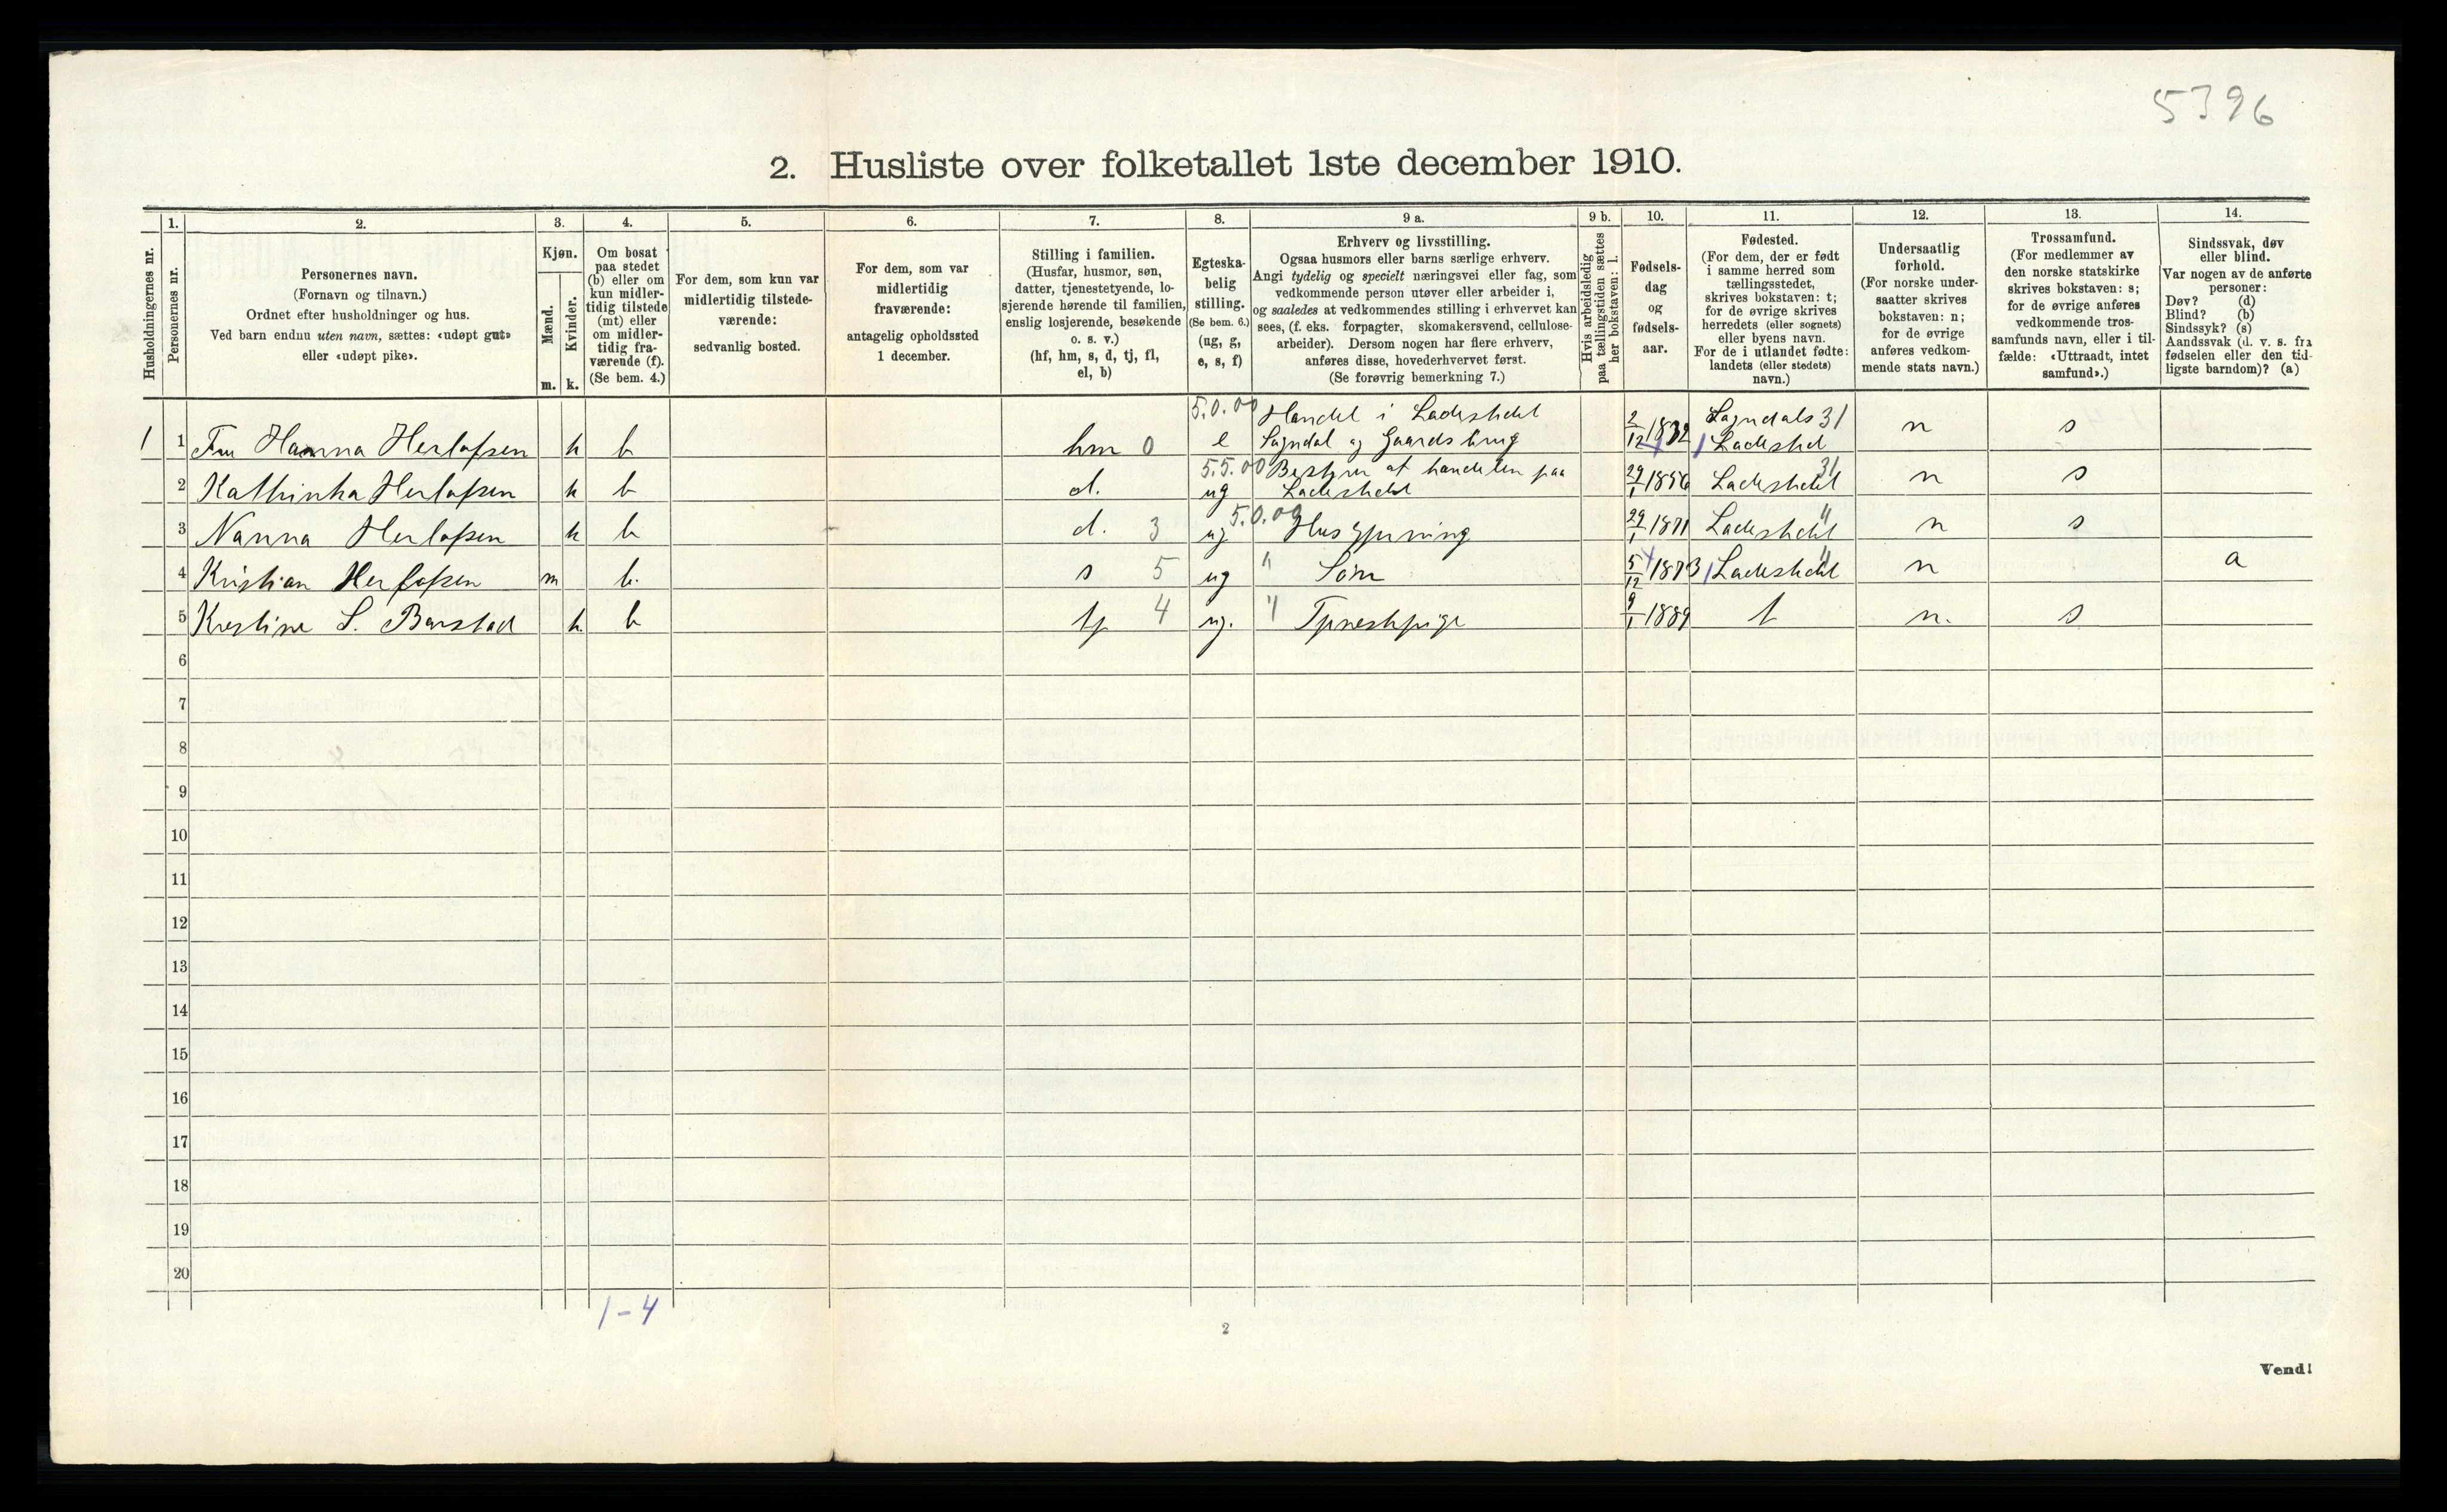 5396
2. Husliste over folketallet 1ste december 1910.
Husholdningernes nr.
1.
Personernes nr.
2.
Personernes navn.
(Fornavn og tilnavn.)
Ordnet efter husholdninger og hus.
Ved barn endnu uten navn, sættes: «udøpt gut»
eller «udøpt pike».
3.
Kjøn.
Mænd.
m.
Kvinder.
k.
4.
Om bosat
paa stedet
(b) eller om
kun midler-
tidig tilstede
(mt) eller
om midler-
tidig fra-
værende (f).
(Se bem. 4.)
5.
For dem, som kun var
midlertidig tilstede-
værende:
sedvanlig bosted.
6.
For dem, som var
midlertidig
fraværende:
antagelig opholdssted
1 december.
7.
Stilling i familien.
(Husfar, husmor, søn,
datter, tjenestetyende, lo-
sjerende hørende til familien,
enslig losjerende, besøkende
o. s. v.)
(hf, hm, s, d, tj, fl,
el, b)
8.
Egteska-
belig
stilling.
(Se bem. 6.)
(ug, g,
e, s, f)
9 a.
Erhverv og livsstilling.
Ogsaa husmors eller barns særlige erhverv.
Angi tydelig og specielt næringsvei eller fag, som
vedkommende person utøver eller arbeider i,
og saaledes at vedkommendes stilling i erhvervet kan
sees, (f. eks. forpagter, skomakersvend, cellulose-
arbeider). Dersom nogen har flere erhverv,
anføres disse, hovederhvervet først.
(Se forøvrig bemerkning 7.)
9 b.
Hvis arbeidsledig
paa tællingstiden sættes
her bokstaven: l.
10.
Fødsels-
dag
og
fødsels-
aar.
11.
Fødested.
(For dem, der er født
i samme herred som
tællingsstedet,
skrives bokstaven: t;
for de øvrige skrives
herredets (eller sognets)
eller byens navn.
For de i utlandet fødte:
landets (eller stedets)
navn.)
12.
Undersaatlig
forhold.
(For norske under-
saatter skrives
bokstaven: n;
for de øvrige
anføres vedkom-
mende stats navn.)
13.
Trossamfund.
(For medlemmer av
den norske statskirke
skrives bokstaven: s;
for de øvrige anføres
vedkommende tros-
samfunds navn, eller i til-
fælde: «Uttraadt, intet
samfund».)
14.
Sindssvak, døv
eller blind.
Var nogen av de anførte
personer:
Døv? (d)
Blind? (b)
Sindssyk? (s)
Aandssvak (d. v. s. fra
fødselen eller den tid-
ligste barndom)? (a)
5.0.00 Handel i Ladestedet Sogndals 31
1 1 Fru Hanna Herlofsen k b hm 0 e Sogndal og Gaardsbrug 2/12 1832 Ladested n s
5.5.00 Bestyrer af handelen paa 31
2 Kathinka Herlofsen k b d. ug Ladestedet 29/1 1856 Ladestedet n s
5.0.00 "
3 Nanna Herlofsen k b d. 3 ug Husgjerning 29/1 1871 Ladestedet n s
4 Kristian Herlofsen m b. s 5 ug " Søn 5/12 1873 Ladestedet " n a
5 Kristine S. Barstad k. b tj 4 ug. " Tjenestpige 9/1 1889 t n. s
6
7
8
9
10
11
12
13
14
15
16
17
18
19
20
1-4
2
Vend!